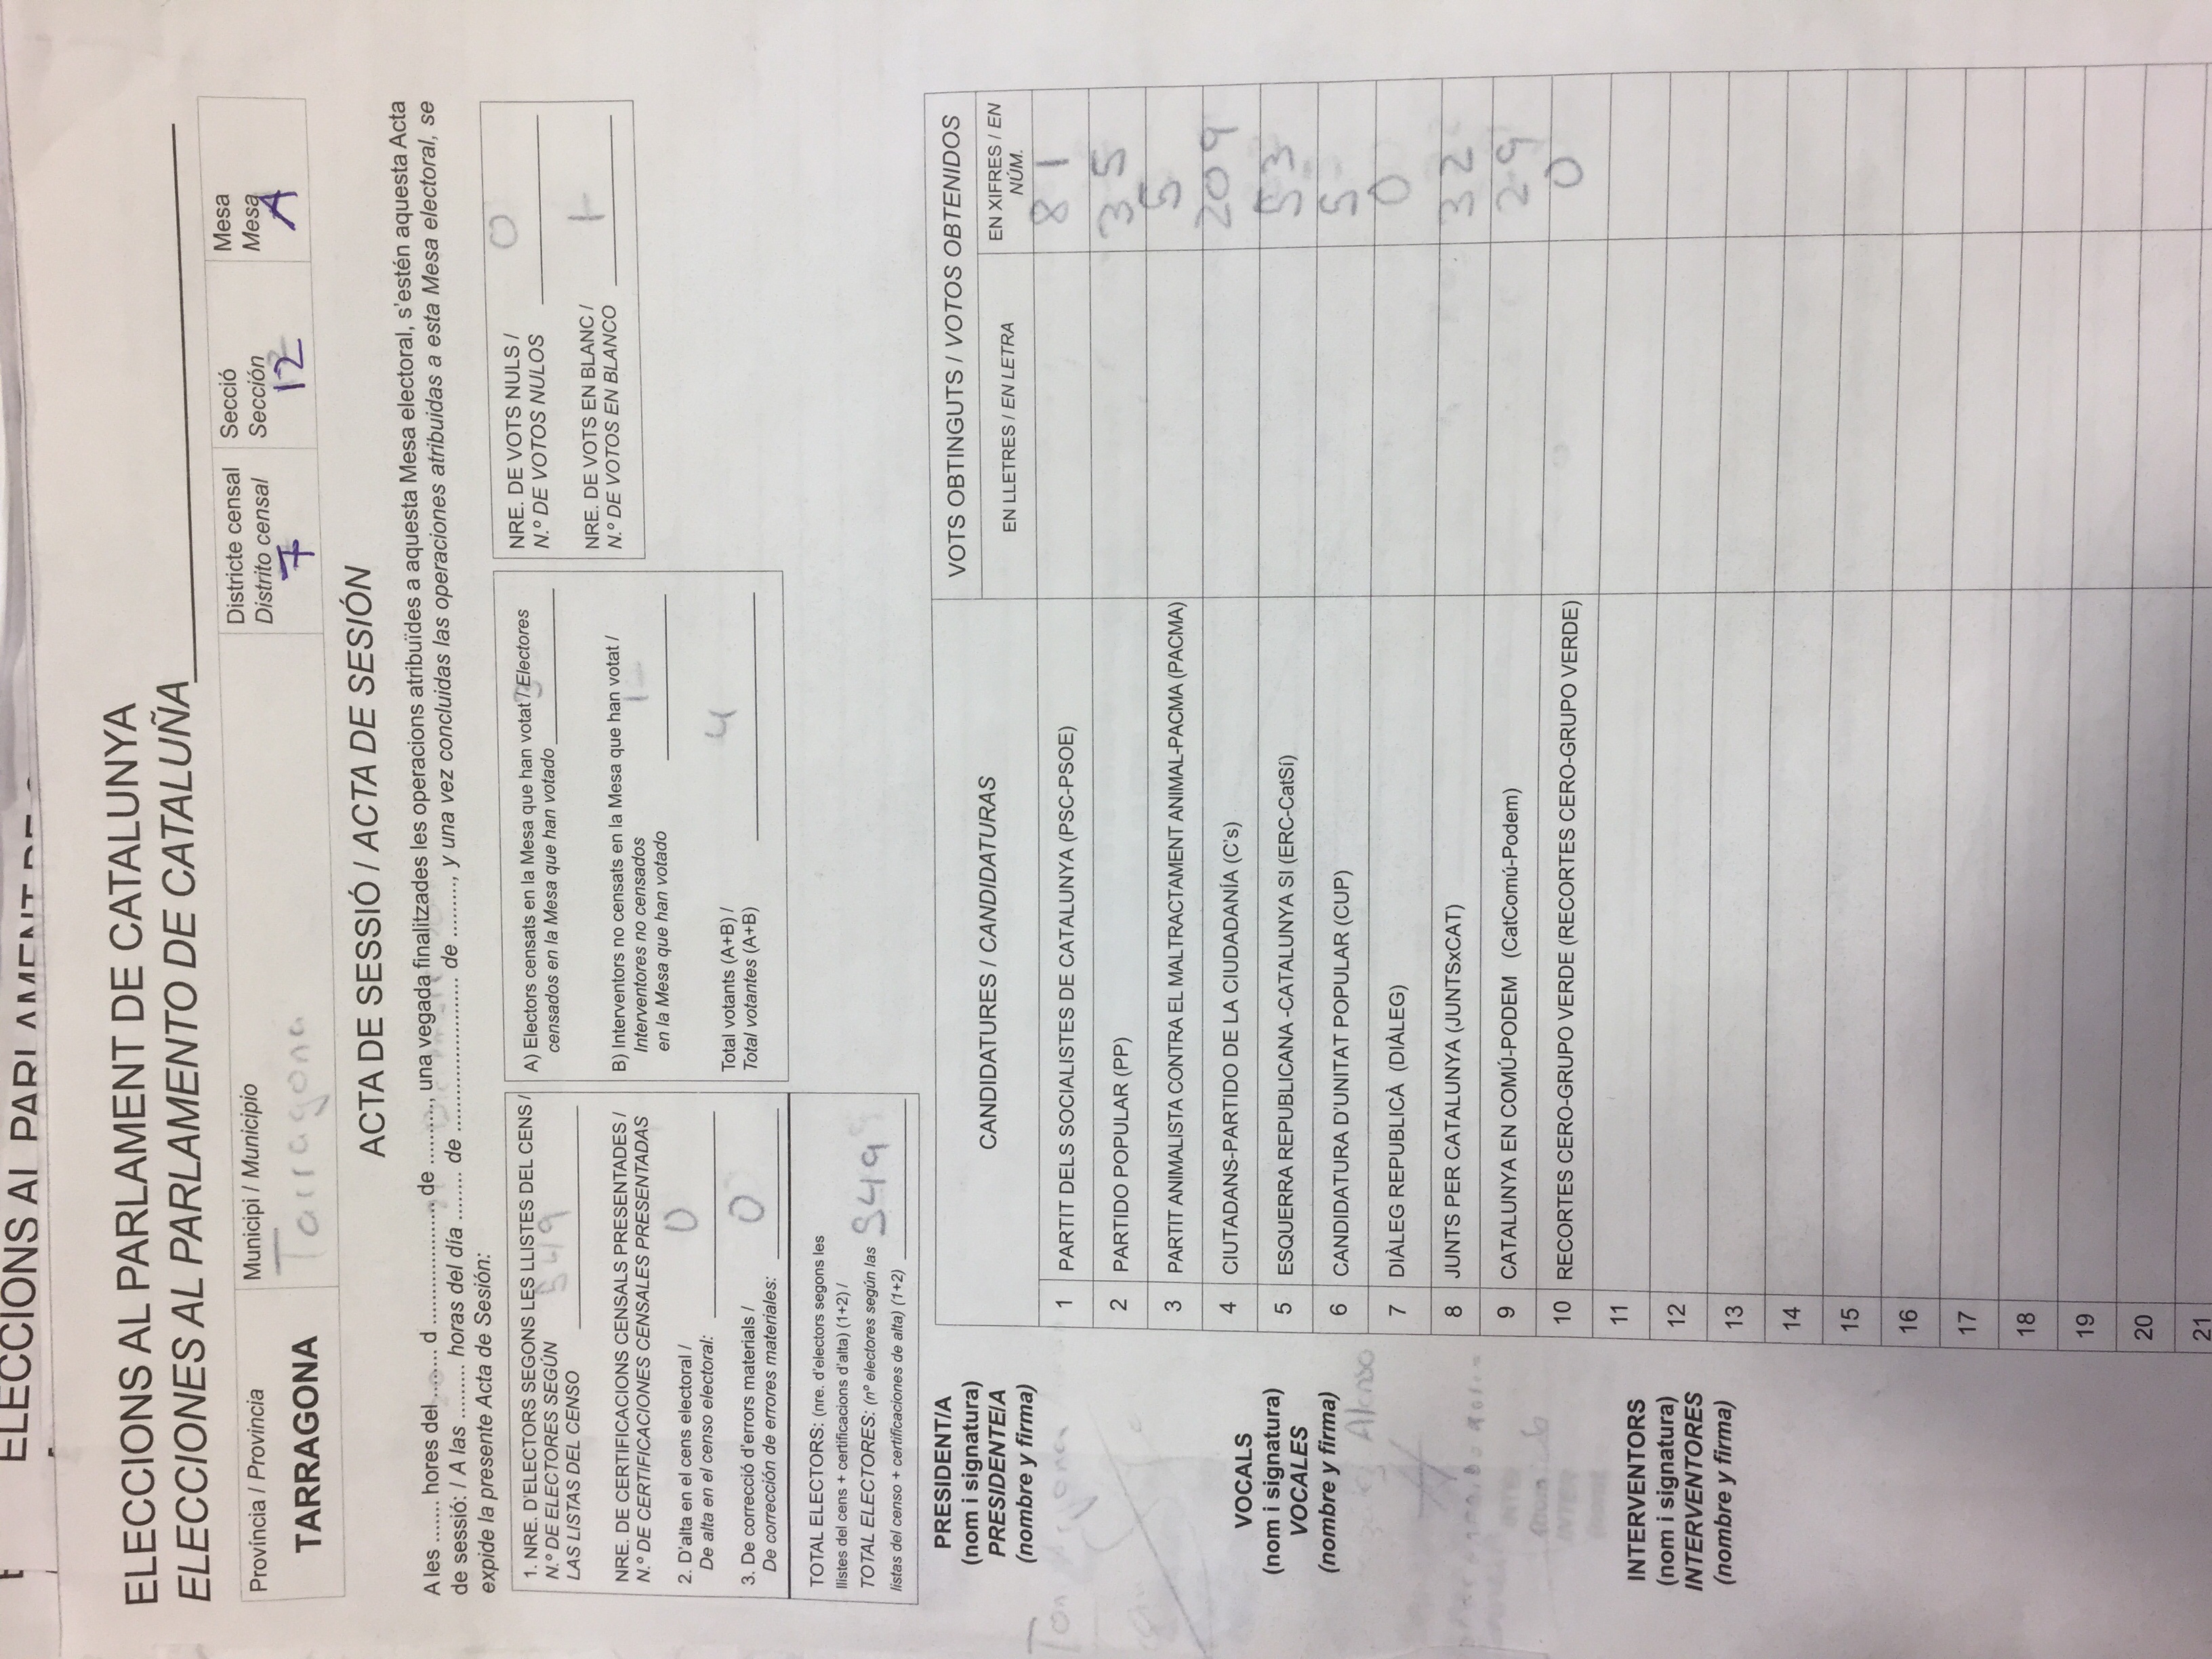 ELECCIONS AL PARLAMENT DE
ELECCIONS AL PARLAMENT DE CATALUNYA
ELECCIONES AL PARLAMENTO DE CATALUÑA
Província / Provincia
TARRAGONA
Municipi / Municipio
Tarragona
Districte censal
Distrito censal
7
Secció
Sección
12
Mesa
Mesa
A
ACTA DE SESSIÓ / ACTA DE SESIÓN
A les ....... hores del ........ d ..................... de .........., una vegada finalitzades les operacions atribuïdes a aquesta Mesa electoral, s'estén aquesta Acta
de sessió: / A las ......... horas del día ........ de .......................... de ........., y una vez concluidas las operaciones atribuidas a esta Mesa electoral, se
expide la presente Acta de Sesión:
1. NRE. D'ELECTORS SEGONS LES LLISTES DEL CENS /
N.º DE ELECTORES SEGÚN
LAS LISTAS DEL CENSO
549
NRE. DE CERTIFICACIONS CENSALS PRESENTADES /
N.º DE CERTIFICACIONES CENSALES PRESENTADAS
2. D'alta en el cens electoral /
De alta en el censo electoral: 0
3. De correcció d'errors materials /
De corrección de errores materiales: 0
TOTAL ELECTORS: (nre. d'electors segons les
llistes del cens + certificacions d'alta) (1+2) /
TOTAL ELECTORES: (nº electores según las 549
listas del censo + certificaciones de alta) (1+2)
A) Electors censats en la Mesa que han votat / Electores
censados en la Mesa que han votado 3
B) Interventors no censats en la Mesa que han votat /
Interventores no censados
en la Mesa que han votado 1
Total votants (A+B) /
Total votantes (A+B) 4
NRE. DE VOTS NULS /
N.º DE VOTOS NULOS 0
NRE. DE VOTS EN BLANC /
N.º DE VOTOS EN BLANCO 1
PRESIDENT/A
(nom i signatura)
PRESIDENTE/A
(nombre y firma)
VOCALS
(nom i signatura)
VOCALES
(nombre y firma)
Alonso
INTERVENTORS
(nom i signatura)
INTERVENTORES
(nombre y firma)
CANDIDATURES / CANDIDATURAS
VOTS OBTINGUTS / VOTOS OBTENIDOS
EN LLETRES / EN LETRA
EN XIFRES / EN
NÚM.
1 PARTIT DELS SOCIALISTES DE CATALUNYA (PSC-PSOE) 81
2 PARTIDO POPULAR (PP) 35
3 PARTIT ANIMALISTA CONTRA EL MALTRACTAMENT ANIMAL-PACMA (PACMA) 5
4 CIUTADANS-PARTIDO DE LA CIUDADANÍA (C's) 209
5 ESQUERRA REPUBLICANA -CATALUNYA SI (ERC-CatSí) 53
6 CANDIDATURA D'UNITAT POPULAR (CUP) 5
7 DIÀLEG REPUBLICÀ (DIÀLEG) 0
8 JUNTS PER CATALUNYA (JUNTSxCAT) 32
9 CATALUNYA EN COMÚ-PODEM (CatComú-Podem) 29
10 RECORTES CERO-GRUPO VERDE (RECORTES CERO-GRUPO VERDE) 0
11
12
13
14
15
16
17
18
19
20
21